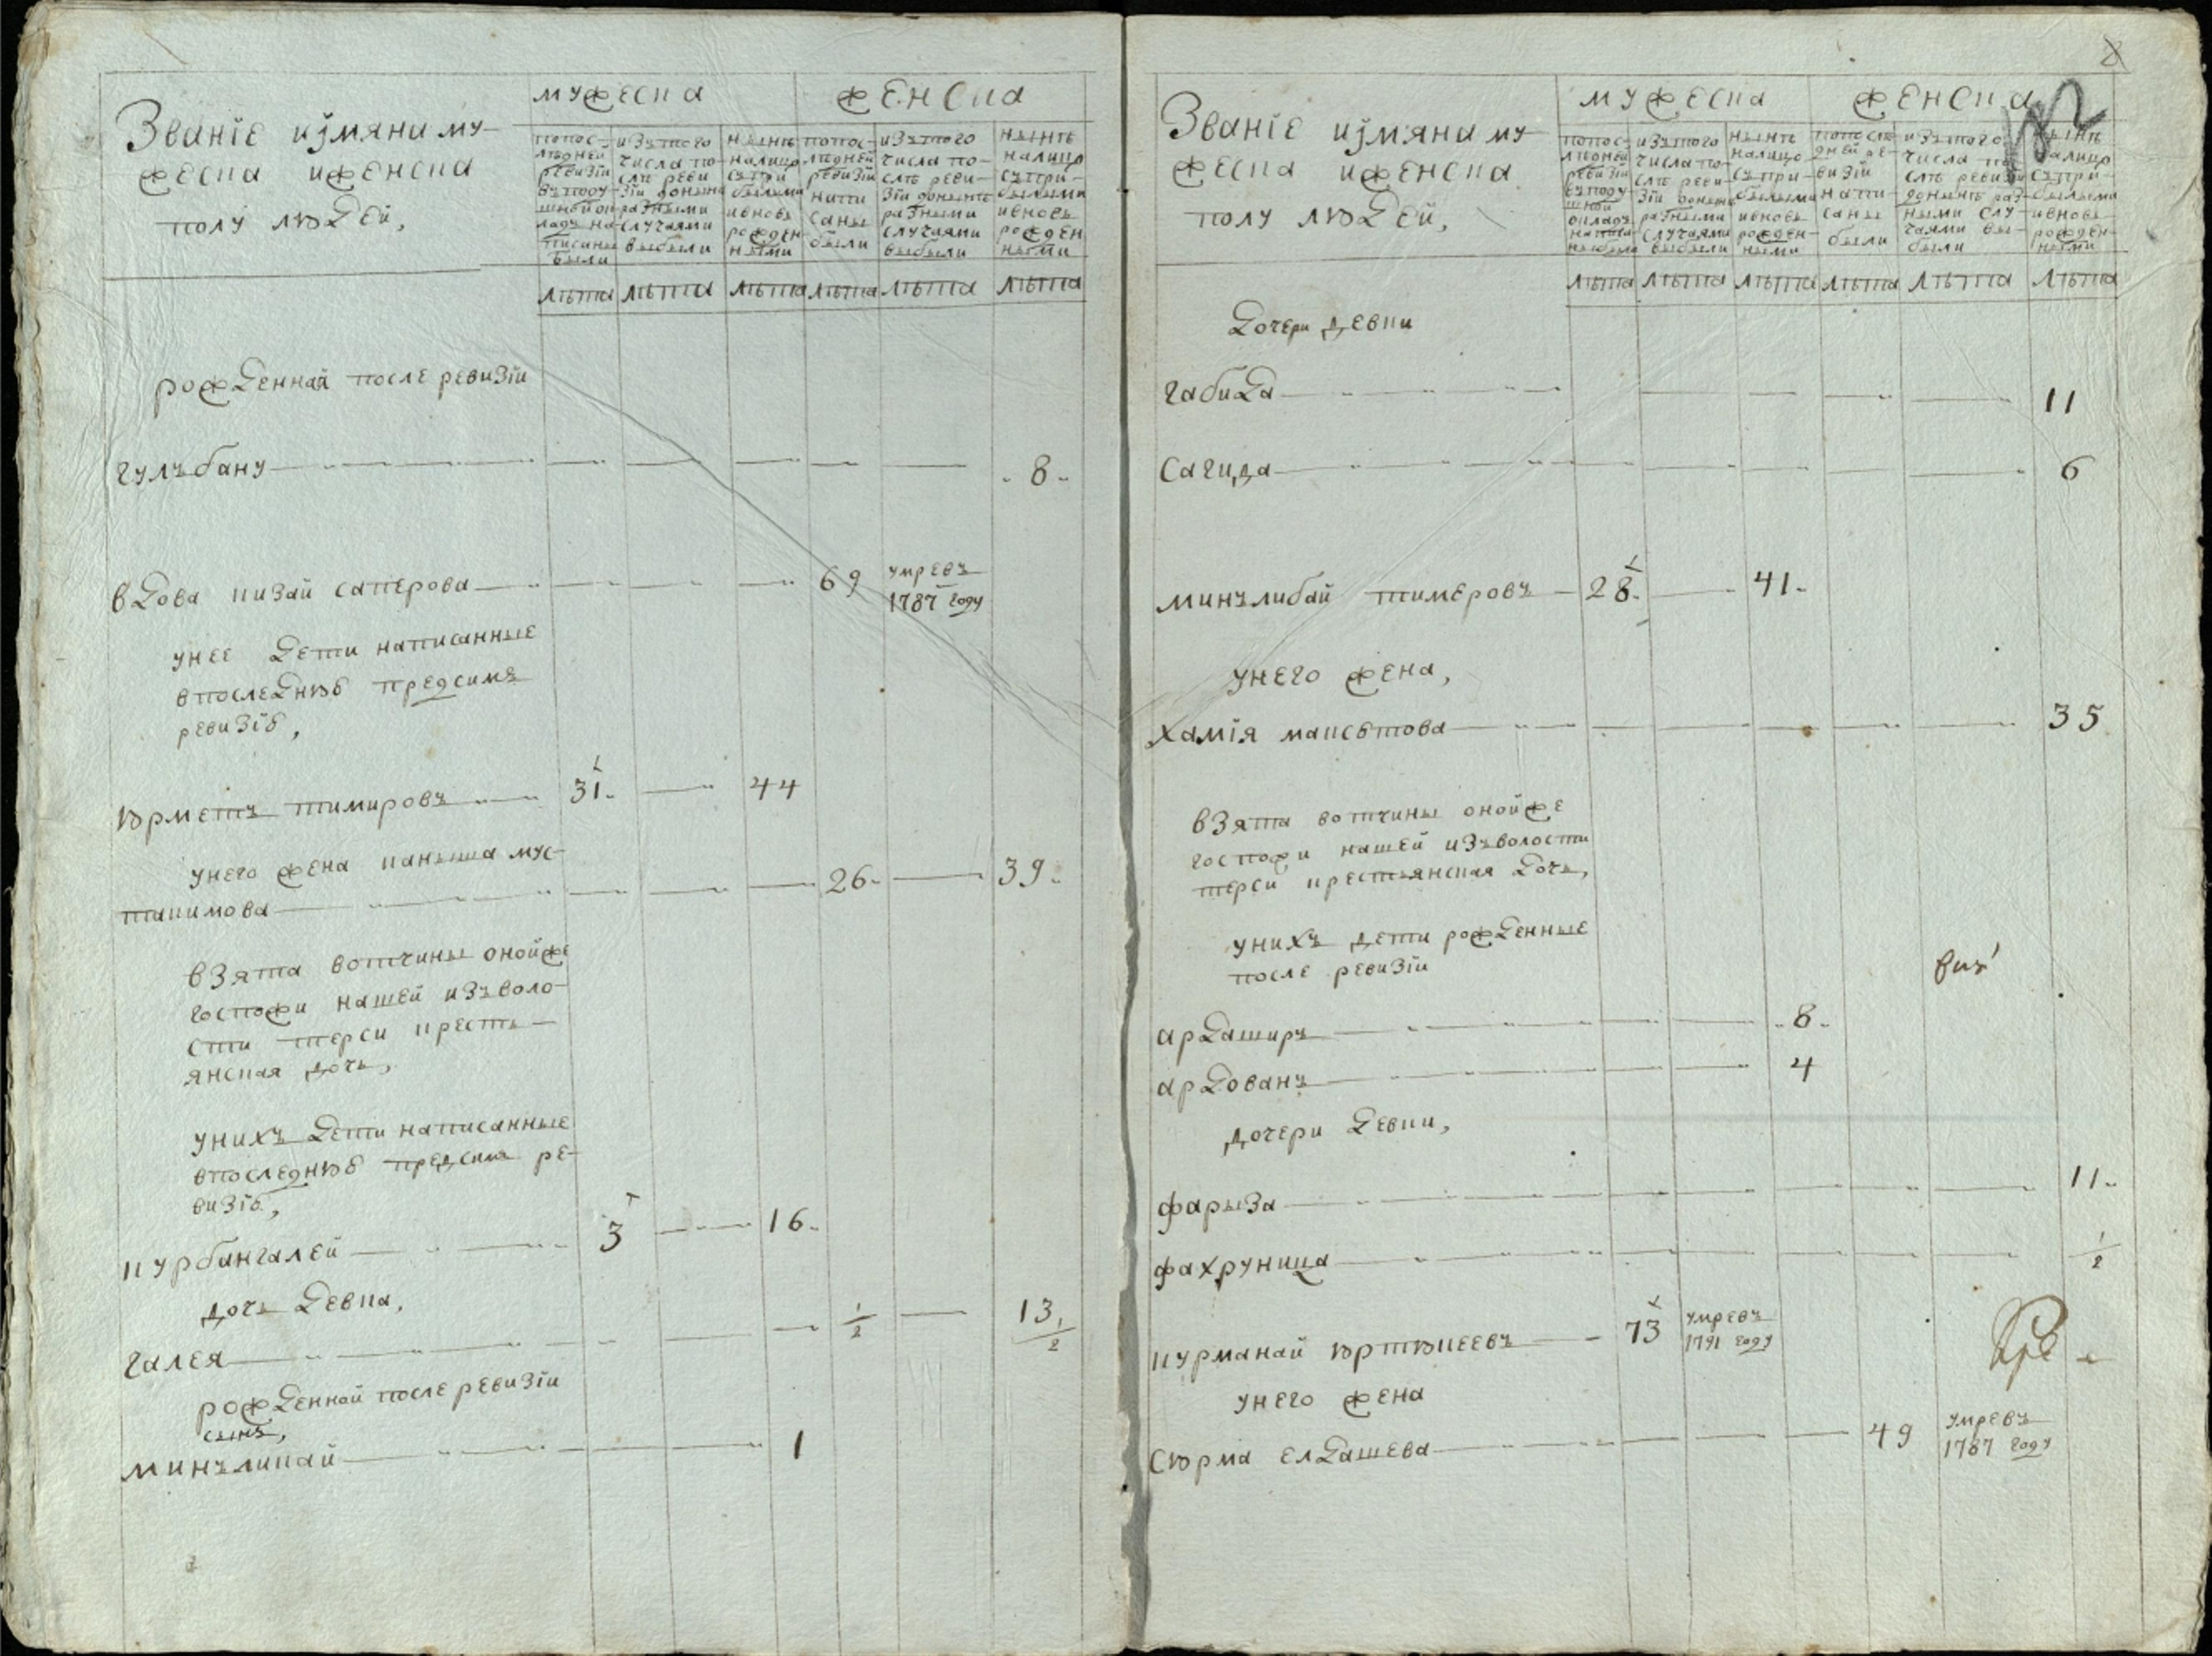 Званїе иѫмяна му-
жеска иженска
полу людей,
мужеска
женска
попос-
лѣдней
ревизїи
вътоду-
шной ок
ладъ на-
писаны
были
изътого
числа по-
слѣ реви-
зїи доныне
разными
случаями
выбыли
нынѣ
налицо
съпри
былыми
ивновь
рожден-
ными
попос-
лѣдней
ревизїи
напи
саны
были
изътого
числа по-
слѣ реви-
зїи донынѣ
разными
случаями
выбыли
нынѣ
налицо
съпри-
былыми
ивновь
рожден
ными
лѣта лѣта лѣта лѣта лѣта лѣта
рожденная после ревизїи
гулъбану 8
вдова кизай сапєрова 69 умревъ
1787 году
унее дети написанные
впоследнюю предсимъ
ревизїю,
юрметъ тимировъ 31 44
унего жена каныша мус-
такимова 26 39
взята вотчины онойже
госпожи нашей изъволо-
сти терси кресть-
янская дочь,
унихъ дети написанные
впоследнюю предсимъ ре-
визїю,
курбангалей 3 16
дочь девка,
галея 1/2 13 1/2
рожденной после ревизїи
сынъ,
минъликай 1
8
Званїе иѫмяна му-
жеска иженска
полу людей,
мужеска
женска
попос-
лѣдней
ревизїи
вътоду
шной
окладъ
написа
ны были
изътого
числа по-
слѣ реви-
зїи доныне
разными
случаями
выбыли
нынѣ
налицо
съпри-
былыми
ивновь
рожден-
ными
попослѣ
дней ре-
визїи
напи-
саны
были
изътого
числа по
слѣ ревизїи
донынѣ раз-
ными слу-
чаями вы-
были
нынѣ
налицо
съпри-
былыми
ивновь
рожден-
ными
лѣта лѣта лѣта лѣта лѣта лѣта
дочери девки
габида 11
сагида 6
минълибай тимеровъ 28 41
унего жена,
хамїя максютова 35
взята вотчины онойже
госпожи нашей изъволости
терси крестьянская дочь,
унихъ дети рожденные
после ревизїи
ардаширъ 8
ардованъ 4
дочери девки,
фарыза 11
фахруница 1/2
курманай юртюкеевъ 73 умревъ
1791 году
унего жена
сюрма елдашева 49 умревъ
1787 году